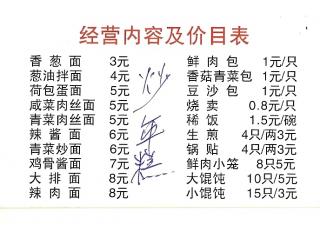 经营内容及价目表
香葱面 3元
葱油拌面 4元
荷包蛋面 5元
咸菜肉丝面 5元
青菜肉丝面 5元
辣酱面 6元
青菜炒面 6元
鸡骨酱面 7元
大排面 8元
辣肉面 8元
炒年糕
鲜肉包 1元/只
香菇青菜包 1元/只
豆沙包 1元/只
烧卖 0.8元/只
稀饭 1.5元/碗
生煎 4只/两3元
锅贴 4只/两3元
鲜肉小笼 8只5元
大馄饨 10只/5元
小馄饨 15只/3元